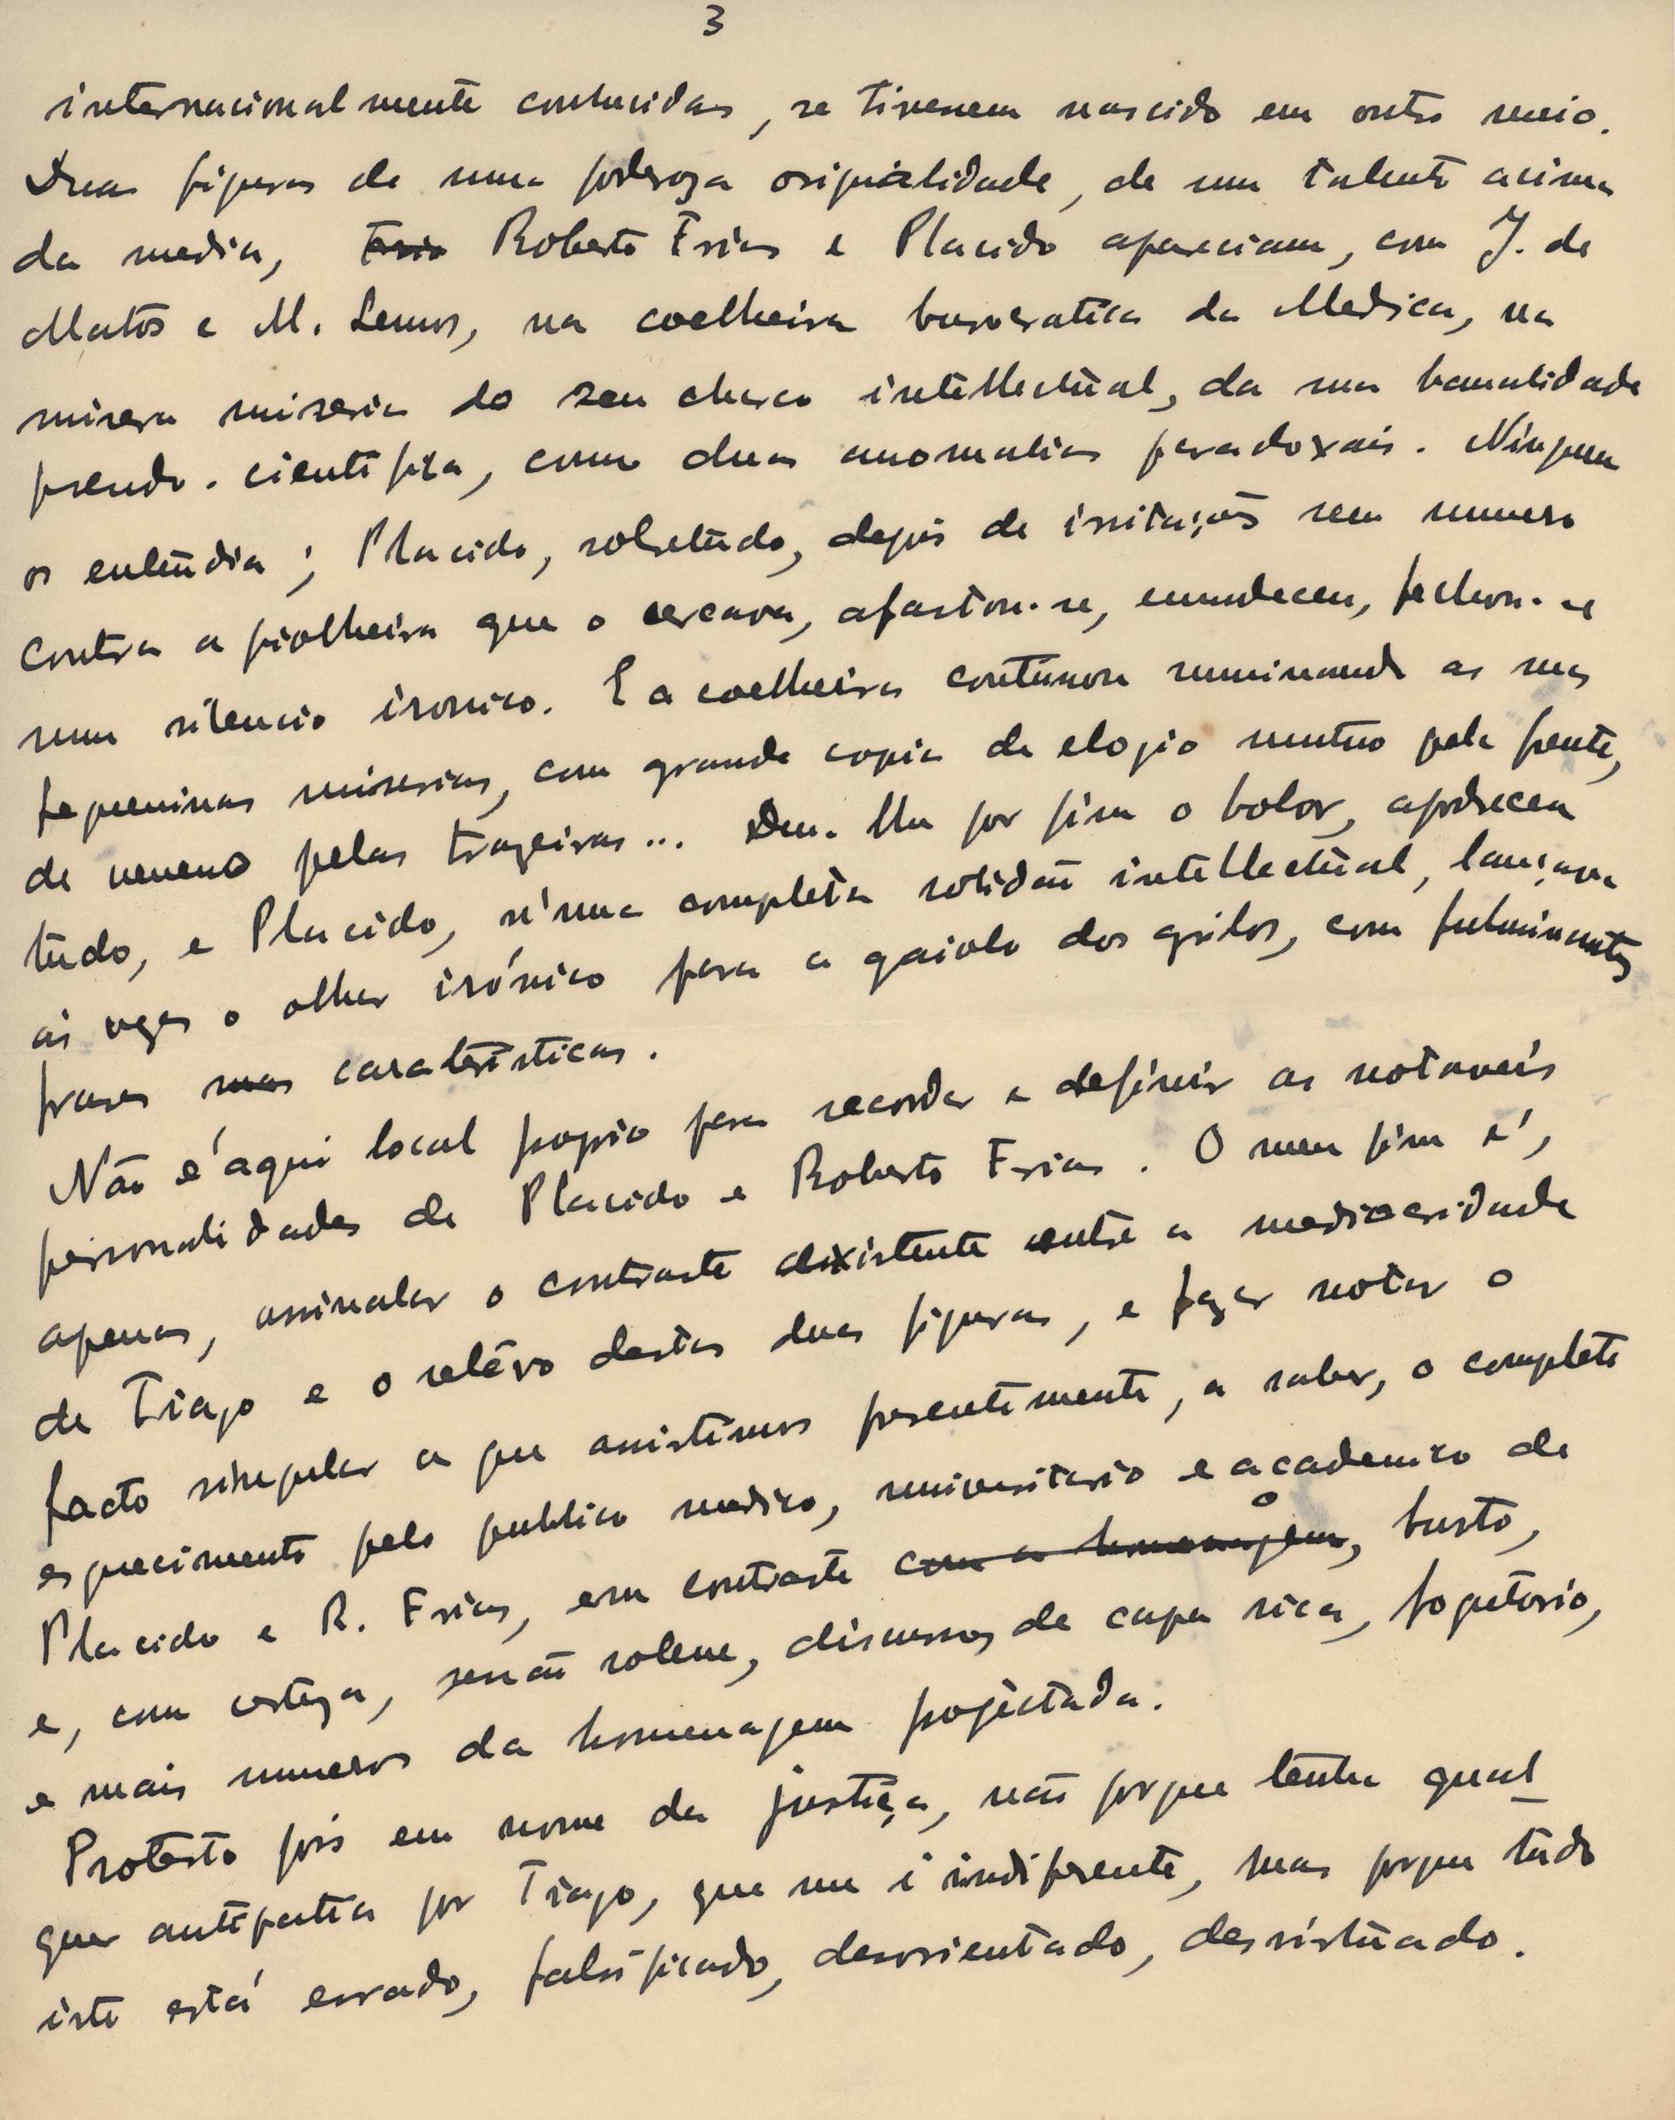 3
internacionalmente conhecidas, se tivessem nascido em outro meio.
Duas figuras de uma poderoza originalidade, de um talento acima
da media, Frias Roberto Frias e Placido apareciam, com J. de
Matos e M. Lemos, na coelheira burocratica da Medica, na
misera miseria do seu charco intellectual, da sua banalidade
pseudo-cientifica, como duas anomalias paradoxais. Ninguem
os entendia; Placido, sobretudo, depois de irritações sem numero
contra a piolheira que o cercava, afastou-se, emudeceu, fechou-se
num silencio ironico. E a coelheira continuou ruminando as suas
pequeninas miserias, com grande copia de elogio mutuo pela frente,
de veneno pelas trazeiras... Deu-lhe por fim o bolor, apodreceu
tudo, e Placido, n'uma completa solidão intellectual, lançava
ás vezes o olhar irónico para a gaiola dos grilos, com fulminantes
frases suas caracteristicas.
Não é aqui local proprio para recordar e definir as notaveis
personalidades de Placido e Roberto Frias. O meu fim é,
apenas, assinalar o contraste existente entre a mediocridade
de Tiago e o relêvo destas duas figuras, e fazer notar o
facto singular a que assistimos presentemente, a saber, o completo
esquecimento pelo publico medico, universitario e academico de
Placido e R. Frias, em contraste com a homenagem, o busto,
e, com certeza, sessão solene, discursos de capa rica, fogutorio,
e mais numeros da homenagem projectada.
Protesto pois em nome da justiça, não porque tenha qual-
quer antipatia por Tiago, que me é indiferente, mas porque tudo
isto está errado, falsificado, desorientado, desvirtuado.